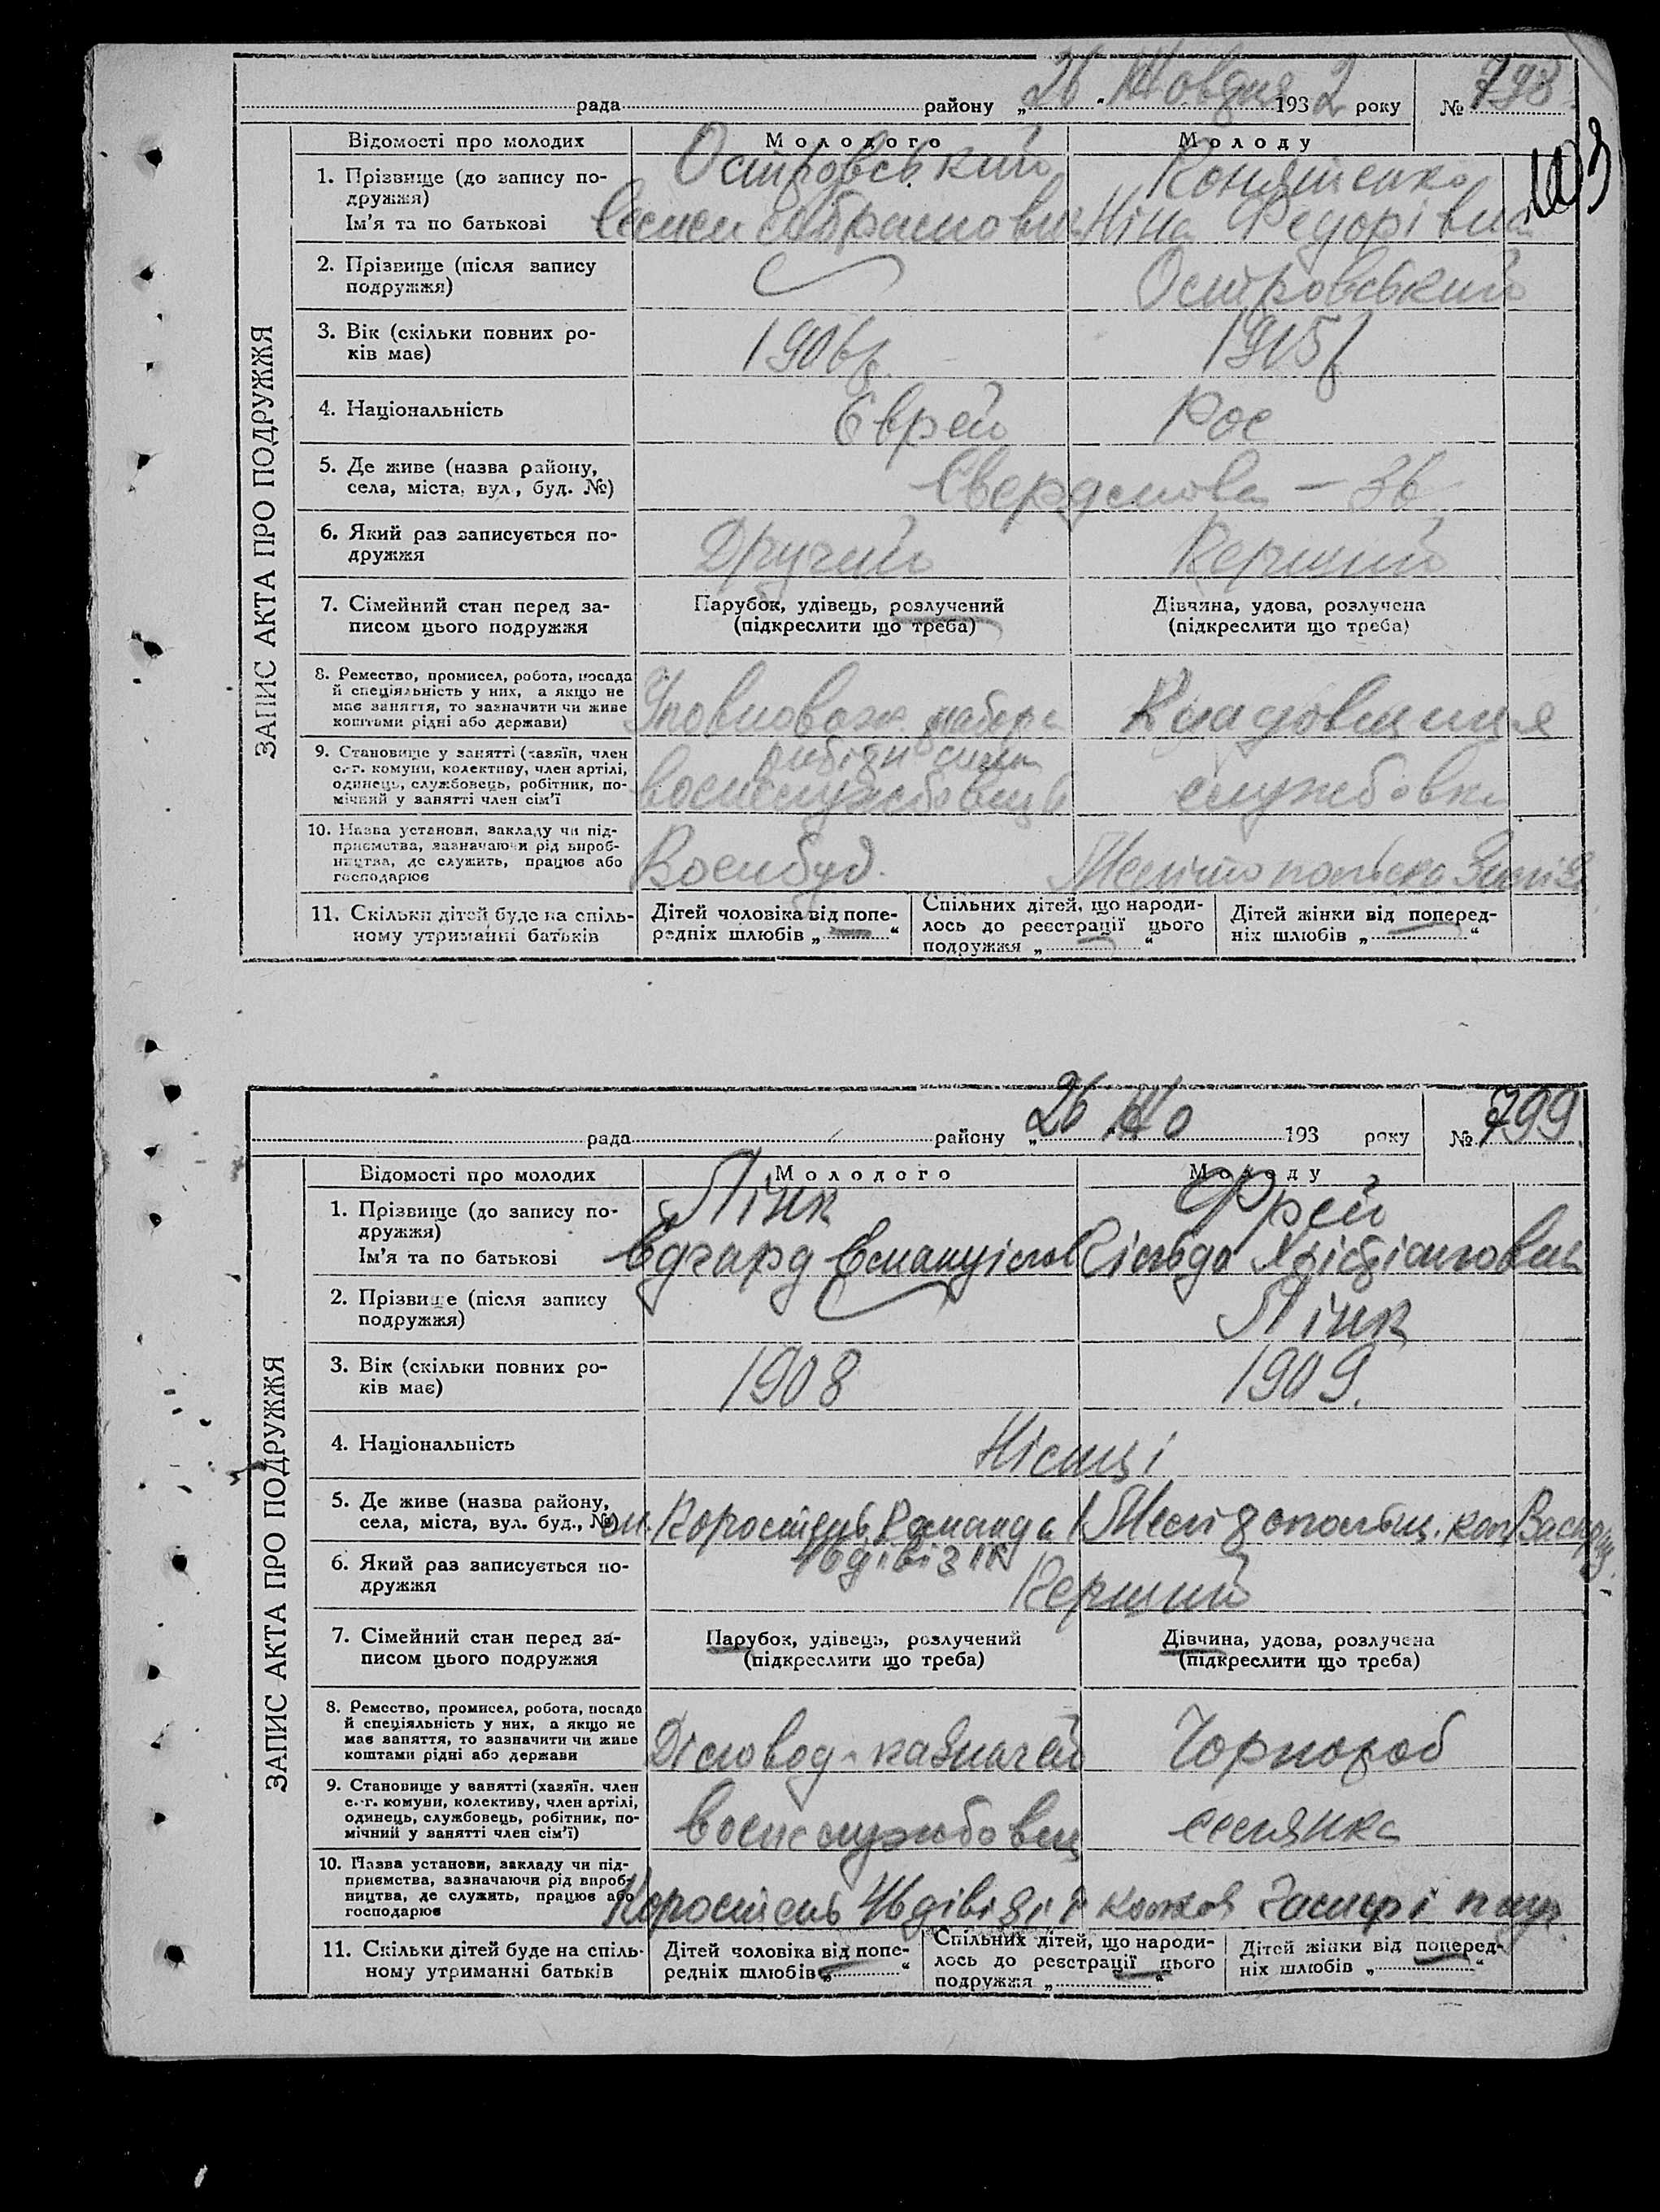 рада районy „26“ Жовтня 1932 року № 798
103
ЗАПИС АКТА ПРО ПОДРУЖЖЯ
Відомості про молодих Молодого Молоду
1. Прізвище (до запису по- Островський
дружжя)
Ім'я та по батькові Абрамович Ніна Федорівна
2. Прізвище (після запису Островський
подружжя)
3. Вік (скільки повних ро- 1906 р. 1915 р
ків має)
4. Національність Єврей Рос
5. Де живе (назва району,
села, міста, вул., буд. №) Свердлова – 36
6. Який раз записується по- Другий Перший
дружжя
7. Сімейний стан перед за- Парубок, удівець, розлучений Дівчина, удова, розлучена
писом цього подружжя (підкреслити що треба) (підкреслити що треба)
8. Ремество, промисел, робота, посада
й спеціяльність у них, а якщо не
має заняття, то зазначити чи живе
коштами рідні або держави) Уповноваж. набора Кладовщиця
робітн сили
9. Становище у занятті (хазяїн, член
с.-г. комуни, колективу, член артілі,
одинець, службовець, робітник, по- службовка
мічний у занятті член сім'ї
10. Назва установи, закладу чи під-
приємства, зазначаючи рід вироб-
ництва, де служить, працює або Военбуд.
господарює
11. Скільки дітей буде на спіль- Дітей чоловіка від попе- Спільних дітей, що народи- Дітей жінки від поперед-
ному утриманні батьків редніх шлюбів „ — “ лось до реєстрації цього ніх шлюбів „ — “
подружжя „ — “
рада районy „26 Жо 193 року № 799.
ЗАПИС АКТА ПРО ПОДРУЖЖЯ
Відомості про молодих Молодого Молоду
1. Прізвище (до запису по- Лінк Фрей
дружжя)
Ім'я та по батькові Едгард Емануілов
2. Прізвище (після запису Лінк
подружжя)
3. Вік (скільки повних ро- 1908 1909.
ків має)
4. Національність Німці
5. Де живе (назва району,
села, міста, вул. буд., №) Коростень
46 дівізіі
6. Який раз записується по- Перший
дружжя
7. Сімейний стан перед за- Парубок, удівець, розлучений Дівчина, удова, розлучена
писом цього подружжя (підкреслити що треба) (підкреслити що треба)
8. Ремество, промисел, робота, посада
й спеціяльність у них, а якщо не
має заняття, то зазначити чи живе
коштами рідні або держави Діловод-казначей Чорнороб
9. Становище у занятті (хазяїн. член
с.-г. комуни, колективу, член артілі,
одинець, службовець, робітник, по- воєнслужбовец селянка
мічний у занятті член сім'ї)
10. Назва установи, закладу чи під-
приємства, зазначаючи рід вироб-
ництва, де служить, працює або
господарює Коростень 46 дівізіі
11. Скільки дітей буде на спіль- Дітей чоловіка від попе- Спільних дітей, що народи- Дітей жінки від поперед-
ному утриманні батьків редніх шлюбів „ — “ лось до реєстрації цього ніх шлюбів „ — “
подружжя „ — “